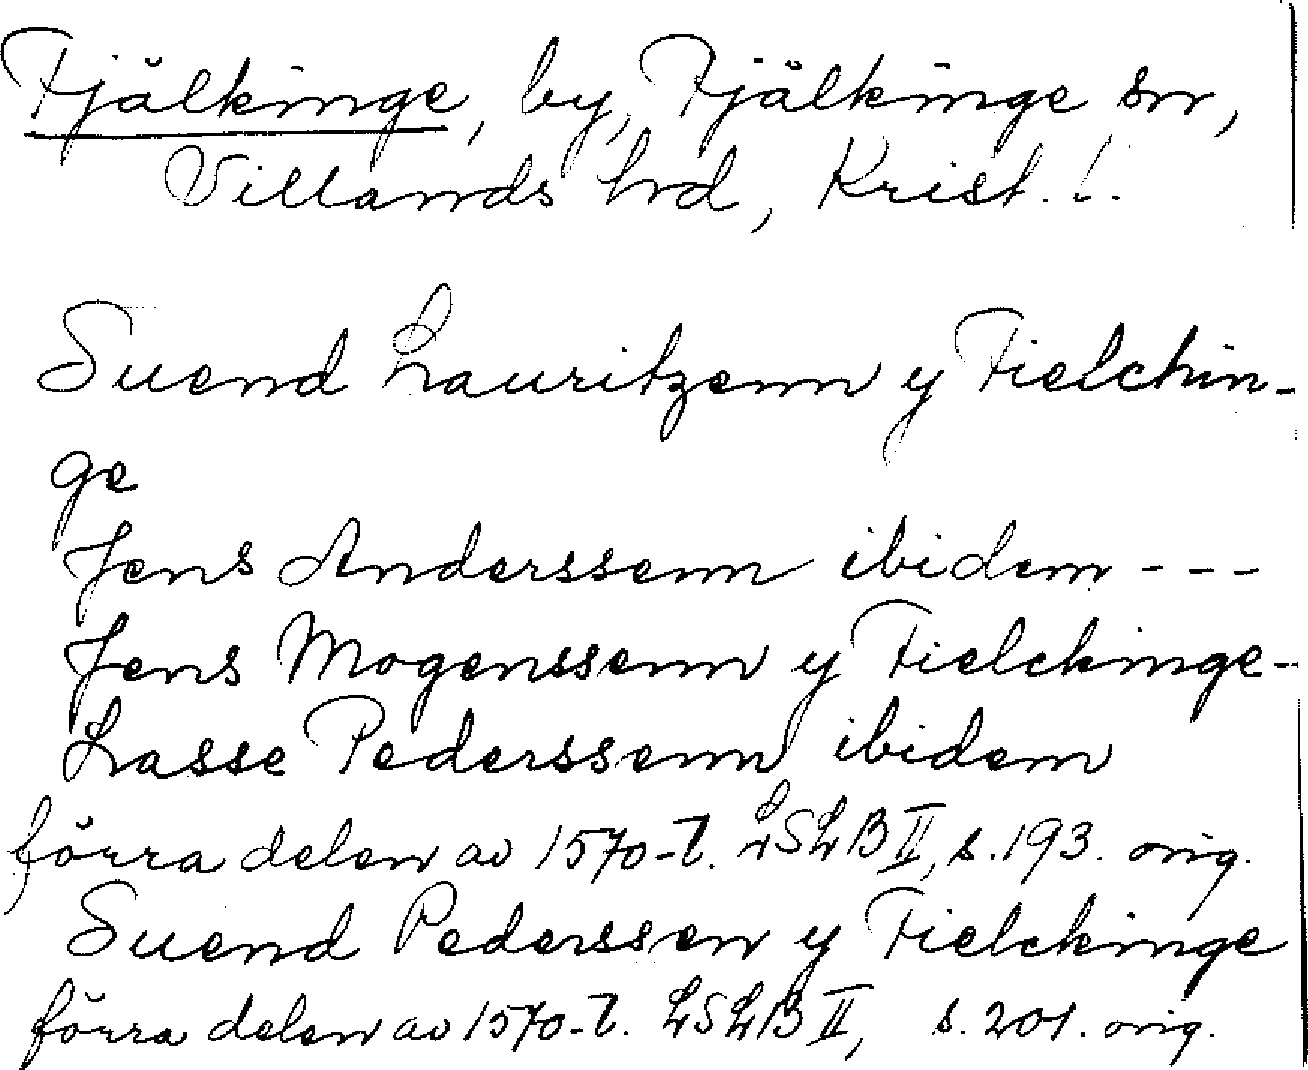 Fjälkinge, by, Fjälkinge sn,
Villands hd, Krist. l.
Suend Lauritzenn y Fielchin-
ge
Jens Anderssenn ibidem - - -
Jens Mogenssenn y Fielckinge -
Lasse Pederssenn ibidem
förra delen av 1570-t. LSLB II, s. 193. orig.
Suend Pederssen y Fielckinge
förra delen av 1570-t. LSLB II, s. 201. orig.